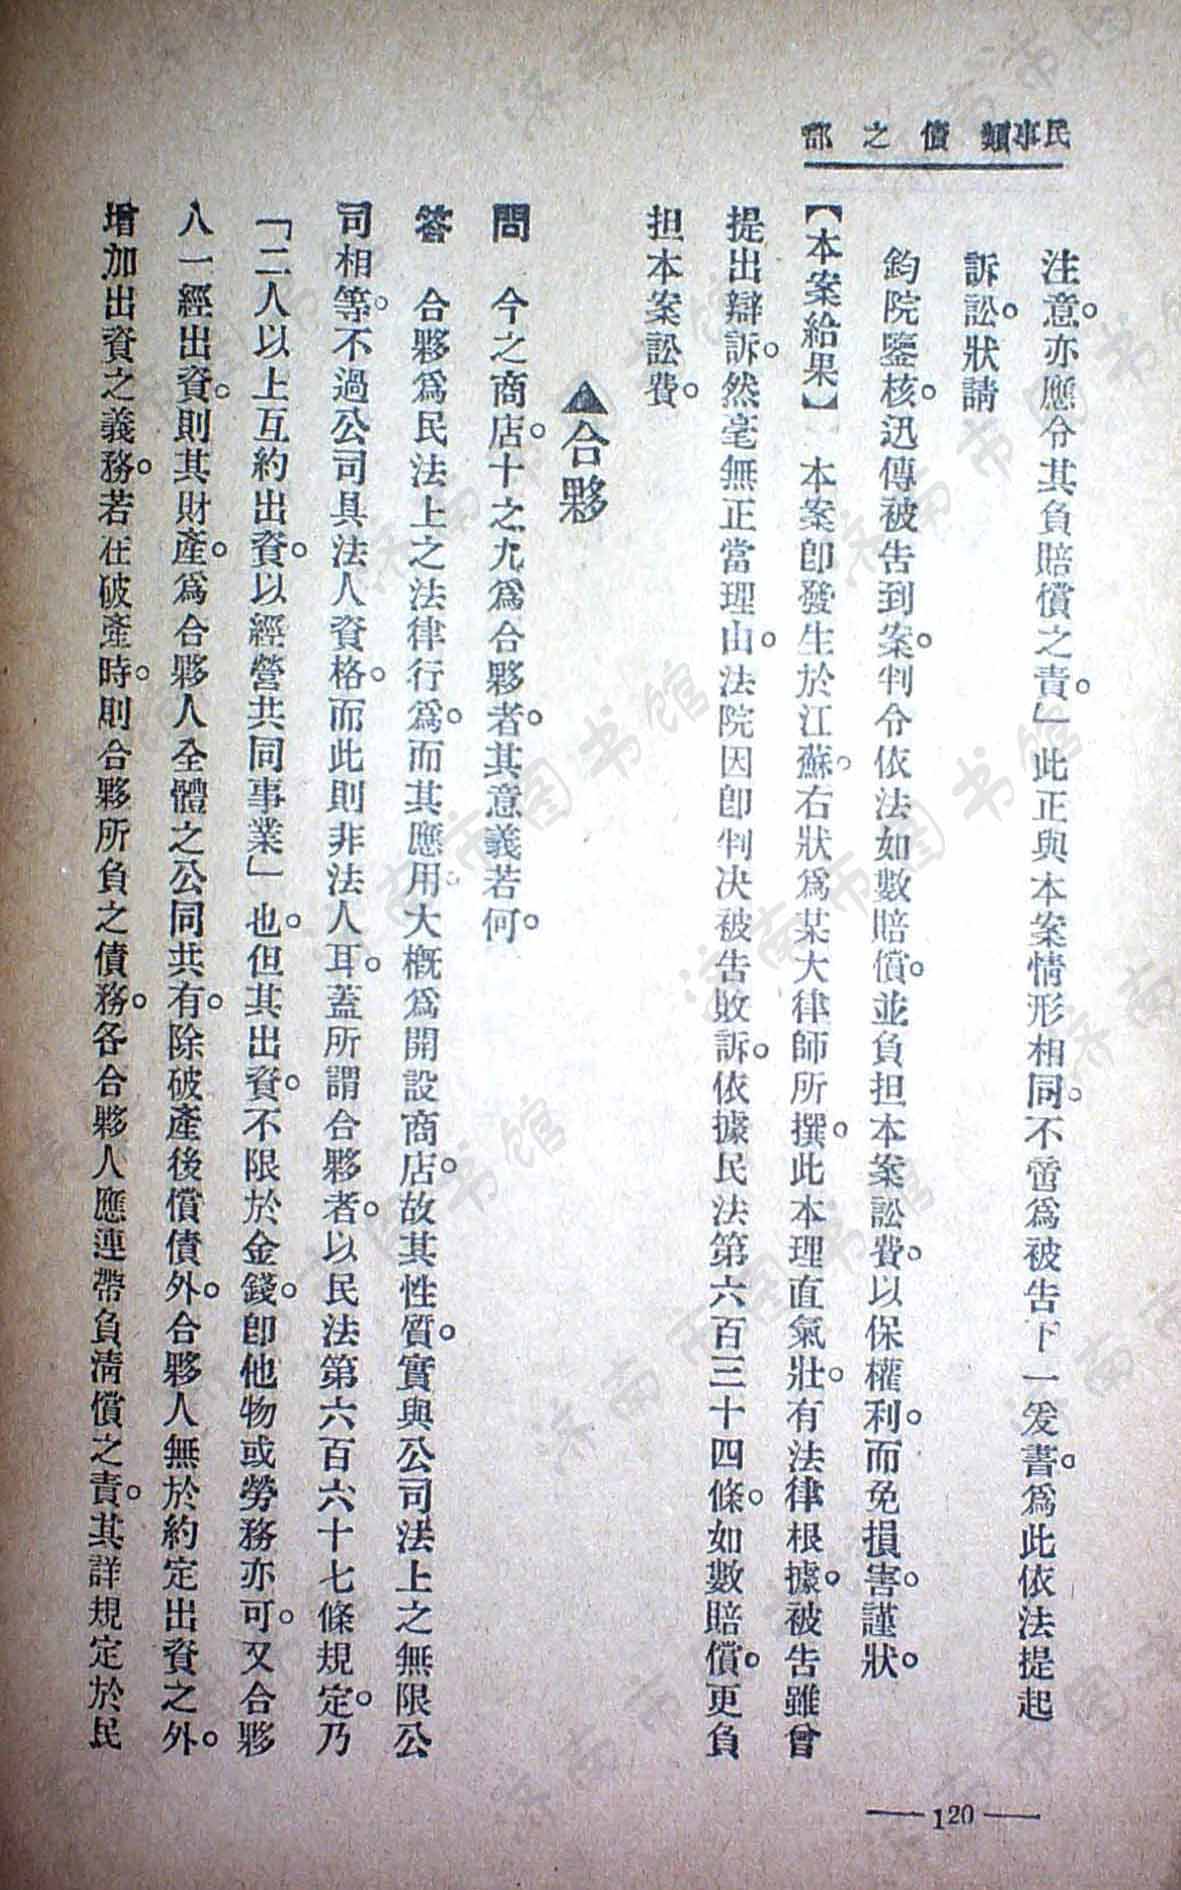 民事類 債之部
注意。亦應令其負賠償之責。」此正與本案情形相同。不啻爲被告下一爰書。爲此依法提起
訴訟。狀請
鈞院鑒核。迅傳被告到案。判令依法如數賠償。並負担本案訟費。以保權利。而免損害。謹狀。
【本案給果】 本案卽發生於江蘇。右狀爲某大律師所撰。此本理直氣壯。有法律根據。被告雖曾
提出辯訴。然毫無正當理山。法院因卽判決被告敗訴。依據民法第六百三十四條。如數賠償。更負
担本案訟費。
▲合夥
問 今之商店。十之九爲合夥者。其意義若何。
答 合夥爲民法上之法律行爲。而其應用。大概爲開設商店。故其性質。實與公司法上之無限公
司相等。不過公司具法人資格。而此則非法人耳。蓋所謂合夥者。以民法第六百六十七條規定。乃
「二人以上互約出資。以經營共同事業」也。但其出資。不限於金錢。卽他物或勞務亦可。又合夥
八一經出資。則其財產。爲合夥人全體之公同共有。除破產後償債外。合夥人無於約定出資之外。
增加出資之義務。若在破產時。則合夥所負之債務。各合夥人應連帶負淸償之責。其詳規定於民
— 120 —
济南市图书馆